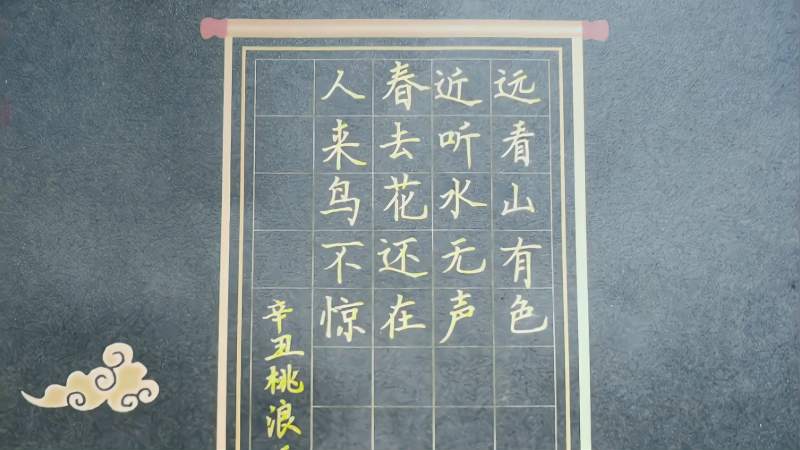 远看山有色
近听水无声
春去花还在
人来鸟不惊
辛丑桃浪